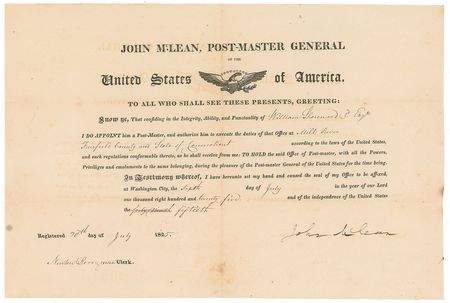 JOHN McLEAN, POST-MASTER GENERAL
OF THE
United States of America.
TO ALL WHO SHALL SEE THESE PRESENTS, GREETING:
KNOW YE, That confiding in the Integrity, Ability, and Punctuality of William Esqr
I DO APPOINT him a Post-Master, and authorize him to execute the duties of that Office at Mill River
Fairfield County and State of Connecticut according to the laws of the United States,
and such regulations conformable thereto, as he shall receive from me: TO HOLD the said Office of Post-master, with all the Powers,
Privileges and emoluments to the same belonging, during the pleasure of the Post-master General of the United States for the time being.
In Testimony whereof, I have hereunto set my hand and caused the seal of my Office to be affixed,
at Washington City, the sixth day of July in the year of our Lord
one thousand eight hundred and twenty five and of the independence of the United States
the fiftieth
Registered 20th day of July 1825.
Clerk.
John McLean